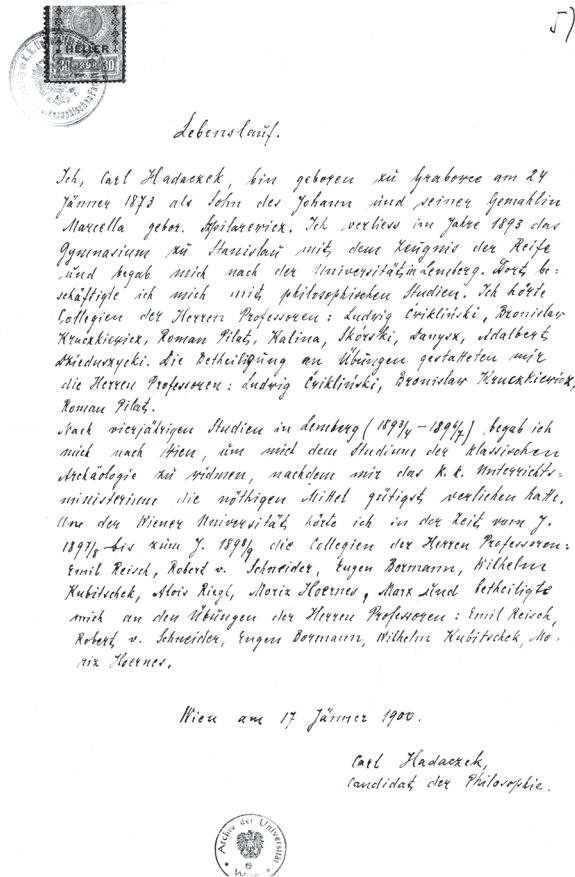 5)
HELLER
30 1898 30
Lebenslauf.
Ich, Carl Hadaczek, bin geboren zu Grabowce am 24
Jänner 1873 als Sohn des Johann und seiner Gemahlin
Marcella gebor. Szpilarewicz. Ich verliess im Jahre 1893 das
Gymnasium zu Stanislau mit dem Zeugnis der Reife
und begab mich nach der Universität in Lemberg. Dort be-
schäftigte ich mich mit philosophischen Studien. Ich hörte
Collegien der Herren Professoren: Ludwig Ćwikliński, Bronislaw
Kruczkiewicz, Roman Pilat, Kalina, Skórski, Danysz, Adalbert
Dzieduszycki. Die Betheiligung an Übungen gestatteten mir
die Herren Professoren: Ludwig Ćwikliński, Bronislaw Kruczkiewicz,
Roman Pilat.
Nach vierjährigen Studien in Lemberg (1893/4 – 1896/7) begab ich
mich nach Wien, um mich dem Studium der klassischen
Archäologie zu widmen, nachdem mir das k. k. Unterrichts-
ministerium die nöthigen Mittel gütigst verliehen hatte.
An der Wiener Universität hörte ich in der Zeit vom J.
1897/8 bis zum J. 1898/9 die Collegien der Herren Professoren:
Emil Reisch, Robert v. Schneider, Eugen Bormann, Wilhelm
Kubitschek, Alois Riegl, Moriz Hoernes, Marx und betheiligte
mich an den Übungen der Herren Professoren: Emil Reisch,
Robert v. Schneider, Eugen Bormann, Wilhelm Kubitschek, Mo-
riz Hoernes.
Wien am 17 Jänner 1900.
Carl Hadaczek,
Candidat der Philosophie.
Archiv der Universität
Wien